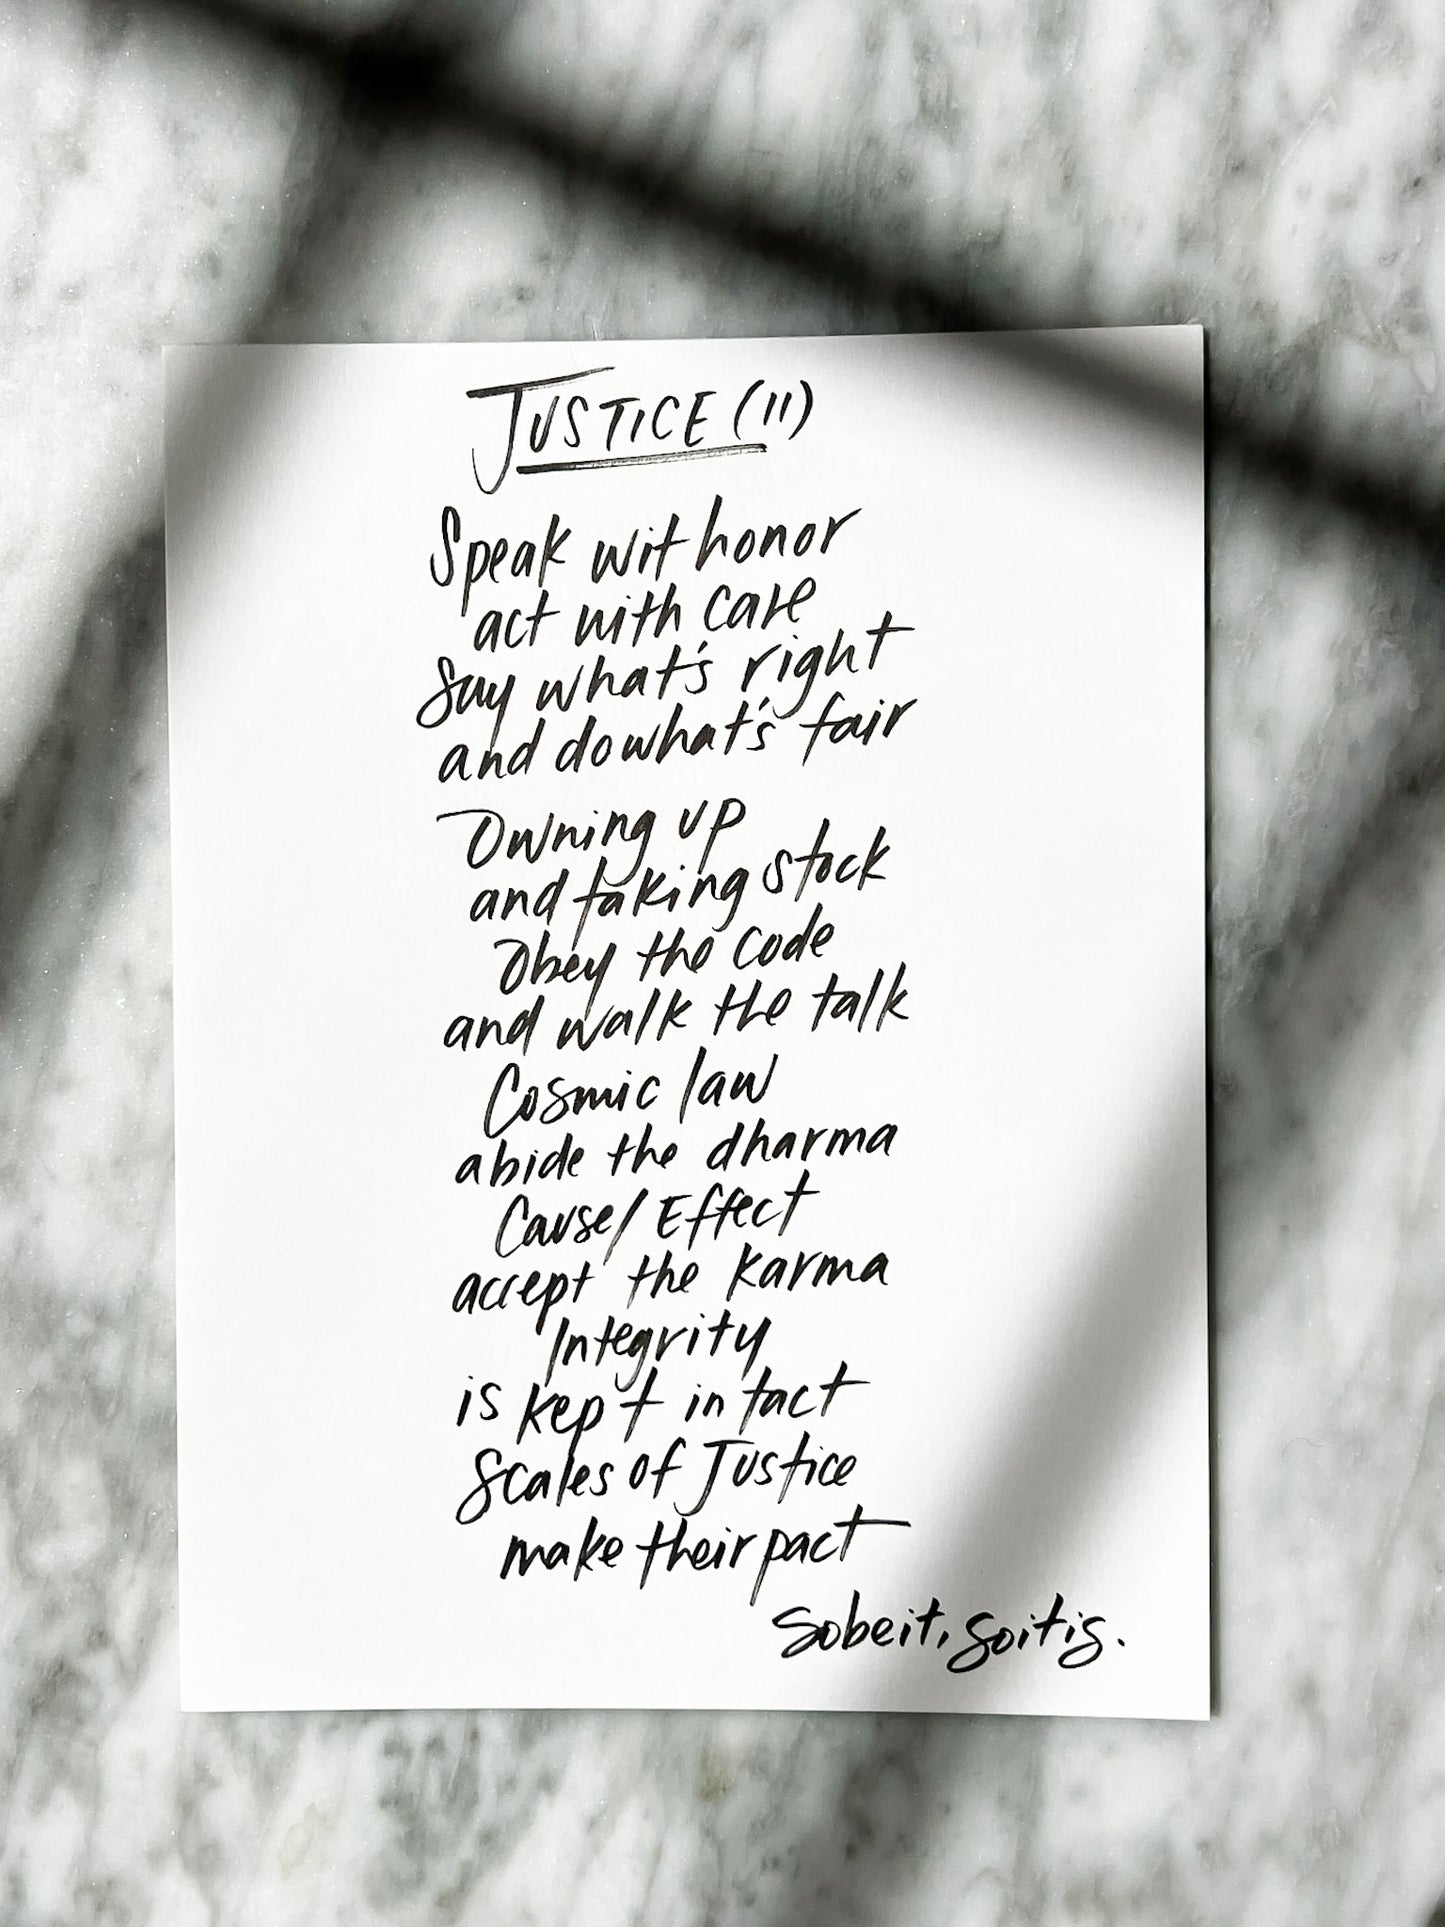 JUSTICE (11)
Speak with honor
act with care
Say what's right
and do what's fair
Owning up
and taking stock
Obey the code
and walk the talk
Cosmic law
abide the dharma
Cause/Effect
accept the karma
Integrity
is kept in tact
Scales of Justice
make their pact
Sobeit, soitis.